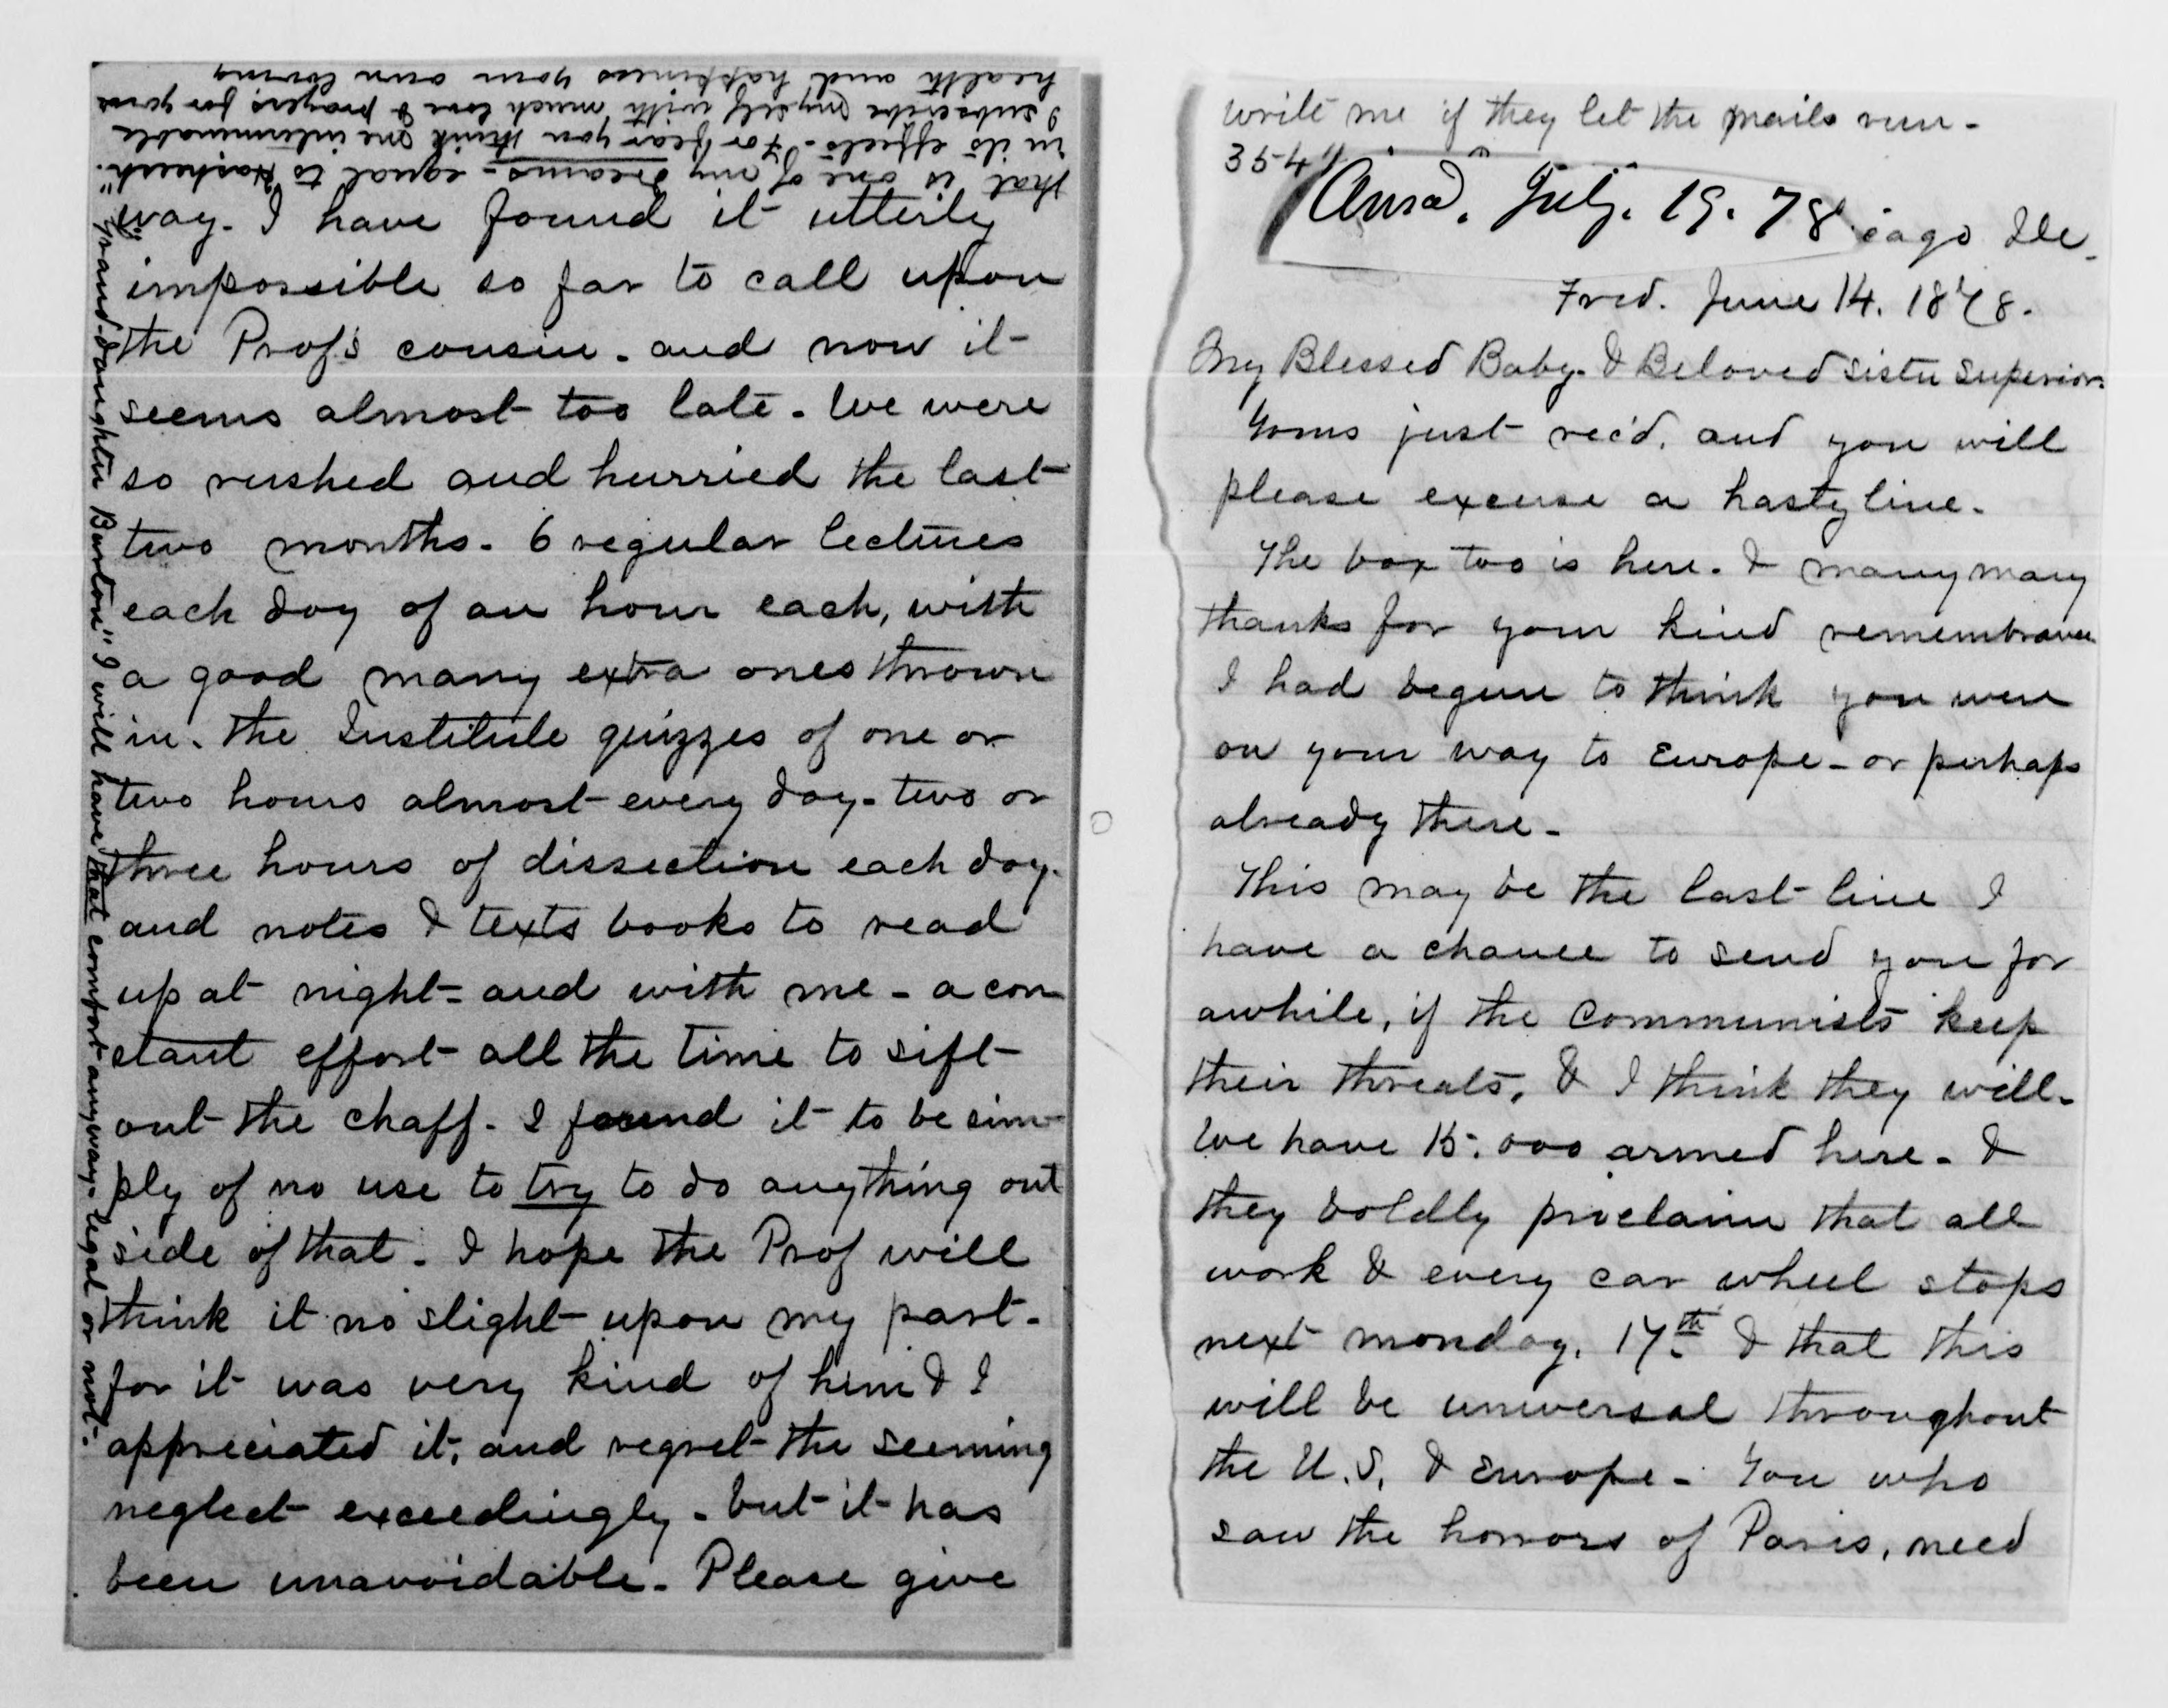 that is one of my dreams - equal to Hasheesh
in its effects - For fear you think me interminable
I subscribe myself with much love & prayers for your
health and happiness your own loving
"Grand-daughter Barton" I will have that comfort anyway - legal or not -
way. I have found it utterly
impossible so far to call upon
the Prof's cousin - and now it
seems almost too late. We were
so rushed and hurried the last
two months - 6 regular lectures
each day of an hour each, with
a good many extra ones thrown
in. The Institute quizzes of one or
two hours almost every day - two or
three hours of dissection each day.
and notes & texts books to read
up at night - and with me - a con
stant effort all the time to sift
out the chaff. I found it to be sim-
ply of no use to try to do anything out
side of that. I hope the Prof will
think it no slight upon my part -
for it was very kind of him & I
appreciated it, and regret the seeming
neglect exceedingly - but it has
been unavoidable. Please give
write me if they let the mails run -
354
Ansd. July. 19. 78
cago Ill.
Frid. June 14. 1878.
My Blessed Baby - & Beloved Sister Superior.
Yours just rec'd. and you will
please excuse a hasty line.
The box too is here. & many many
thanks for your kind remembrance
I had begun to think you were
on your way to Europe - or perhaps
already there -
This may be the last line I
have a chance to send you for
awhile, if the Communists keep
their threats, & I think they will.
We have 15.000 armed here - &
they boldly proclaim that all
work & every car wheel stops
next Monday, 17th & that this
will be universal throughout
the U.S. & Europe - You who
saw the horrors of Paris, need